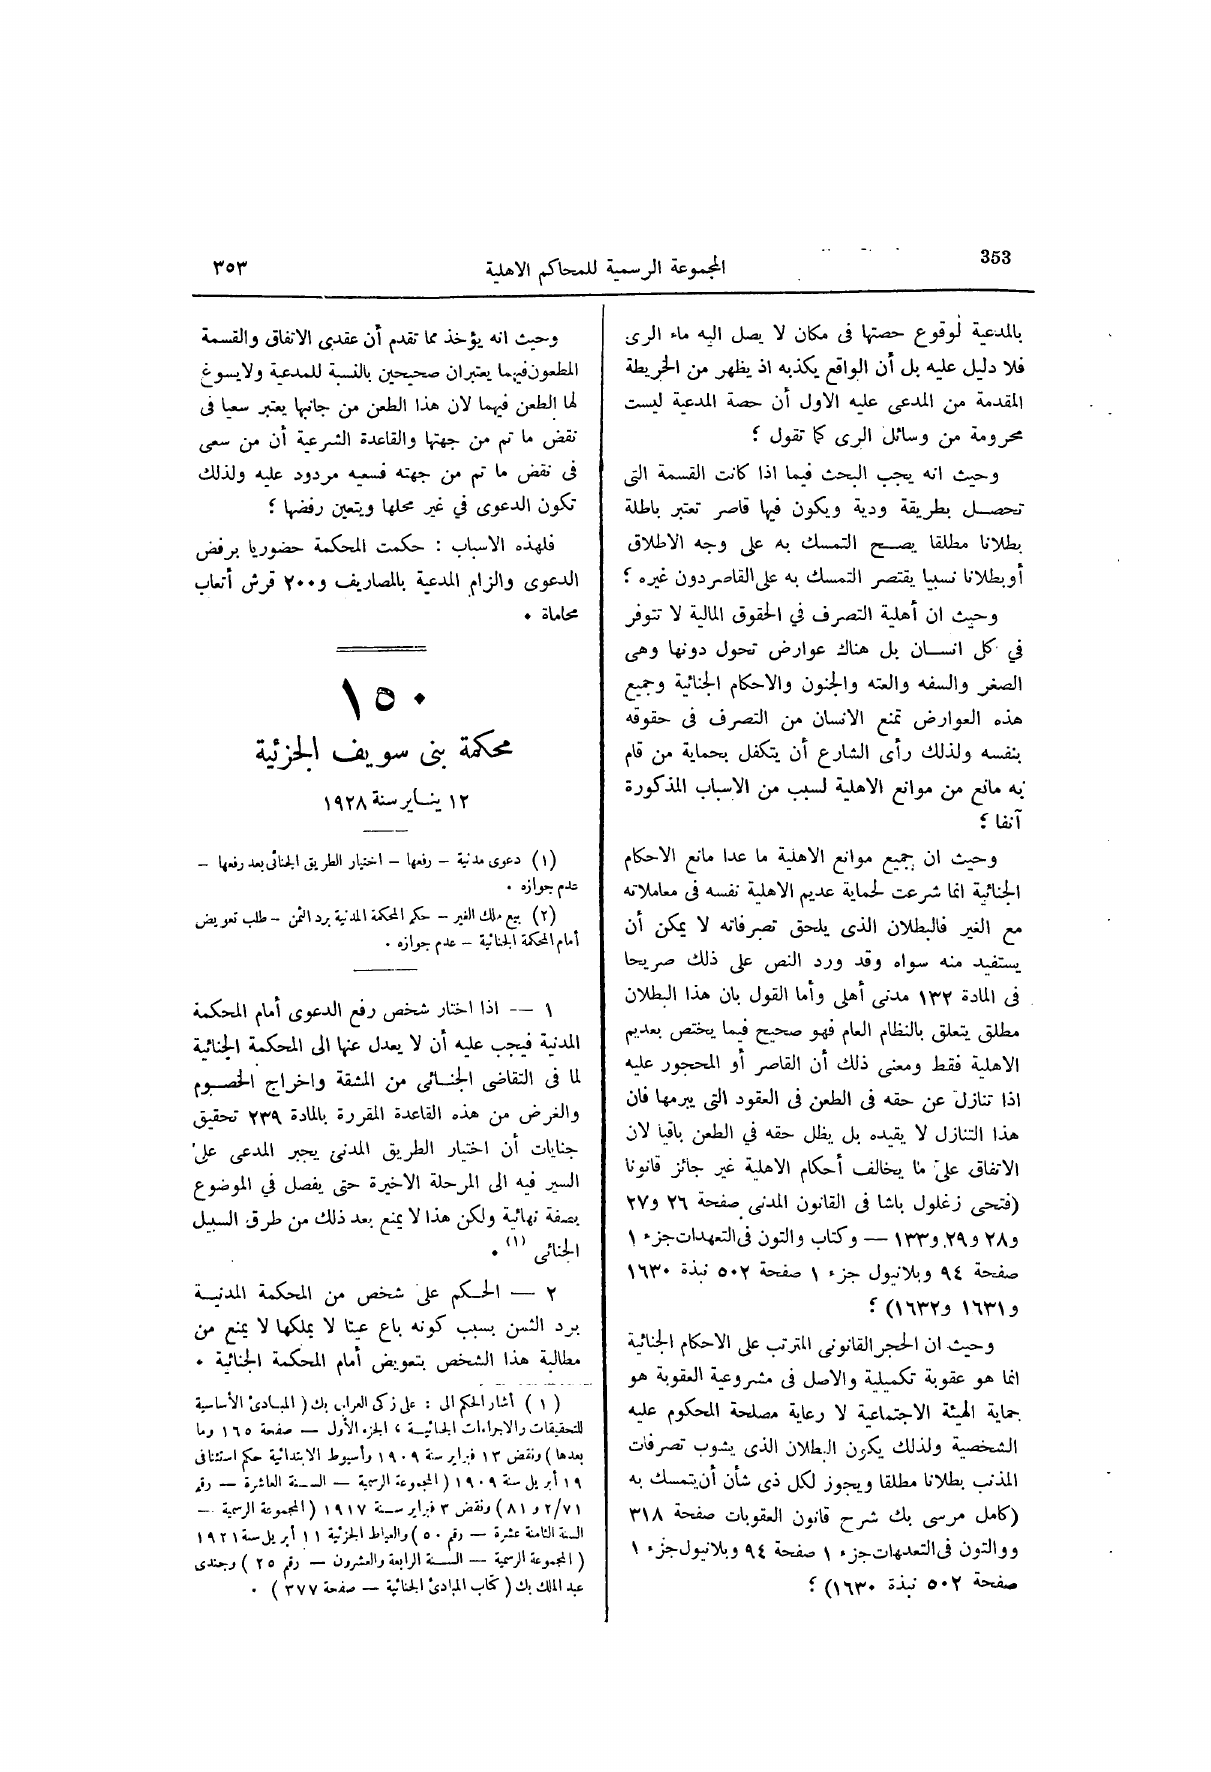 353
المجموعة الرسمية للمحاكم الاهلية
٣٥٣
بالمدعية لوقوع حصتها فى مكان لا يصل اليه ماء الرى
فلا دليل عليه بل أن الواقع يكذبه اذ يظهر من الخريطة
المقدمة من المدعى عليه الاول أن حصة المدعية ليست
محرومة من وسائل الرى كما تقول ؛
وحيث انه يجب البحث فيما اذا كانت القسمة التى
تحصل بطريقة ودية ويكون فيها قاصر تعتبر باطلة
بطلانا مطلقا يصح التمسك به على وجه الاطلاق
أو بطلانا نسبيا يقتصر التمسك به على القاصر دون غيره ؛
وحيث ان أهلية التصرف في الحقوق المالية لا تتوفر
في كل انسان بل هناك عوارض تحول دونها وهى
الصغر والسفه والعته والجنون والاحكام الجنائية وجميع
هذه العوارض تمنع الانسان من التصرف فى حقوقه
بنفسه ولذلك رأى الشارع أن يتكفل بحماية من قام
به مانع من موانع الاهلية لسبب من الاسباب المذكورة
آنفا ؛
وحيث ان جميع موانع الاهلية ما عدا مانع الاحكام
الجنائية انما شرعت لحماية عديم الاهلية نفسه فى معاملاته
مع الغير فالبطلان الذى يلحق تصرفاته لا يمكن أن
يستفيد منه سواه وقد ورد النص على ذلك صريحا
فى المادة ١٣٢ مدنى أهلى وأما القول بان هذا البطلان
مطلق يتعلق بالنظام العام فهو صحيح فيما يختص بعديم
الاهلية فقط ومعنى ذلك أن القاصر أو المحجور عليه
اذا تنازل عن حقه فى الطعن فى العقود التى يبرمها فان
هذا التنازل لا يقيده بل يظل حقه في الطعن باقيا لان
الاتفاق على ما يخالف أحكام الاهلية غير جائز قانونا
(فتحى زغلول باشا فى القانون المدنى صفحة ٢٦ و٢٧
و٢٨ و٢٩ و١٣٣ — وكتاب والتون فى التعهدات جزء ١
صفحة ٩٤ وبلانيول جزء ١ صفحة ٥٠٢ نبذة ١٦٣٠
و١٦٣١ و١٦٣٢) ؛
وحيث ان الحجر القانونى المترتب على الاحكام الجنائية
انما هو عقوبة تكميلية والاصل فى مشروعية العقوبة هو
حماية الهيئة الاجتماعية لا رعاية مصلحة المحكوم عليه
الشخصية ولذلك يكون البطلان الذى يشوب تصرفات
المذنب بطلانا مطلقا ويجوز لكل ذى شأن أن يتمسك به
(كامل مرسى بك شرح قانون العقوبات صفحة ٣١٨
ووالتون فى التعهدات جزء ١ صفحة ٩٤ وبلانيول جزء ١
صفحة ٥٠٢ نبذة ١٦٣٠) ؛
وحيث انه يؤخذ مما تقدم أن عقدى الاتفاق والقسمة
المطعون فيهما يعتبران صحيحين بالنسبة للمدعية ولا يسوغ
لها الطعن فيهما لان هذا الطعن من جانبها يعتبر سعيا فى
نقض ما تم من جهتها والقاعدة الشرعية أن من سعى
فى نقض ما تم من جهته فسعيه مردود عليه ولذلك
تكون الدعوى في غير محلها ويتعين رفضها ؛
فلهذه الاسباب : حكمت المحكمة حضوريا برفض
الدعوى والزام المدعية بالمصاريف و٢٠٠ قرش أتعاب
محاماة .
١٥٠
محكمة بنى سويف الجزئية
١٢ يناير سنة ١٩٢٨
(١) دعوى مدنية – رفعها – اختيار الطريق الجنائى بعد رفعها –
عدم جوازه .
(٢) بيع ملك الغير – حكم المحكمة المدنية برد الثمن – طلب تعويض
أمام المحكمة الجنائية – عدم جوازه .
١ — اذا اختار شخص رفع الدعوى أمام المحكمة
المدنية فيجب عليه أن لا يعدل عنها الى المحكمة الجنائية
لما فى التقاضى الجنائى من المشقة واخراج الخصوم
والغرض من هذه القاعدة المقررة بالمادة ٢٣٩ تحقيق
جنايات أن اختيار الطريق المدنى يجبر المدعى على
السير فيه الى المرحلة الاخيرة حتى يفصل في الموضوع
بصفة نهائية ولكن هذا لا يمنع بعد ذلك من طرق السبيل
الجنائى (١) .
٢ — الحكم على شخص من المحكمة المدنية
برد الثمن بسبب كونه باع عينا لا يملكها لا يمنع من
مطالبة هذا الشخص بتعويض أمام المحكمة الجنائية .
(١) أشار الحكم الى : على زكى العرابى بك ( المبادئ الأساسية
للتحقيقات والاجراءات الجنائية ، الجزء الأول — صفحة ١٦٥ وما
بعدها ) ونقض ١٣ فبراير سنة ١٩٠٩ وأسيوط الابتدائية حكم استئنافى
١٩ أبريل سنة ١٩٠٩ ( المجموعة الرسمية — السنة العاشرة — رقم
٢/٧١ و ٨١ ) ونقض ٣ فبراير سنة ١٩١٧ ( المجموعة الرسمية —
السنة الثامنة عشرة — رقم ٥٠ ) والعياط الجزئية ١١ أبريل سنة ١٩٢١
( المجموعة الرسمية — السنة الرابعة والعشرون — رقم ٢٥ ) وجندى
عبد الملك بك ( كتاب المبادئ الجنائية — صفحة ٣٧٧ ) .